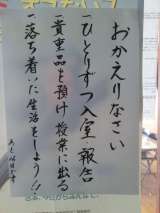 おかえりなさい
一ひとりずつ入室・報告
一貴重品を預け授業に出る
一落ち着いた生活をしよう!!